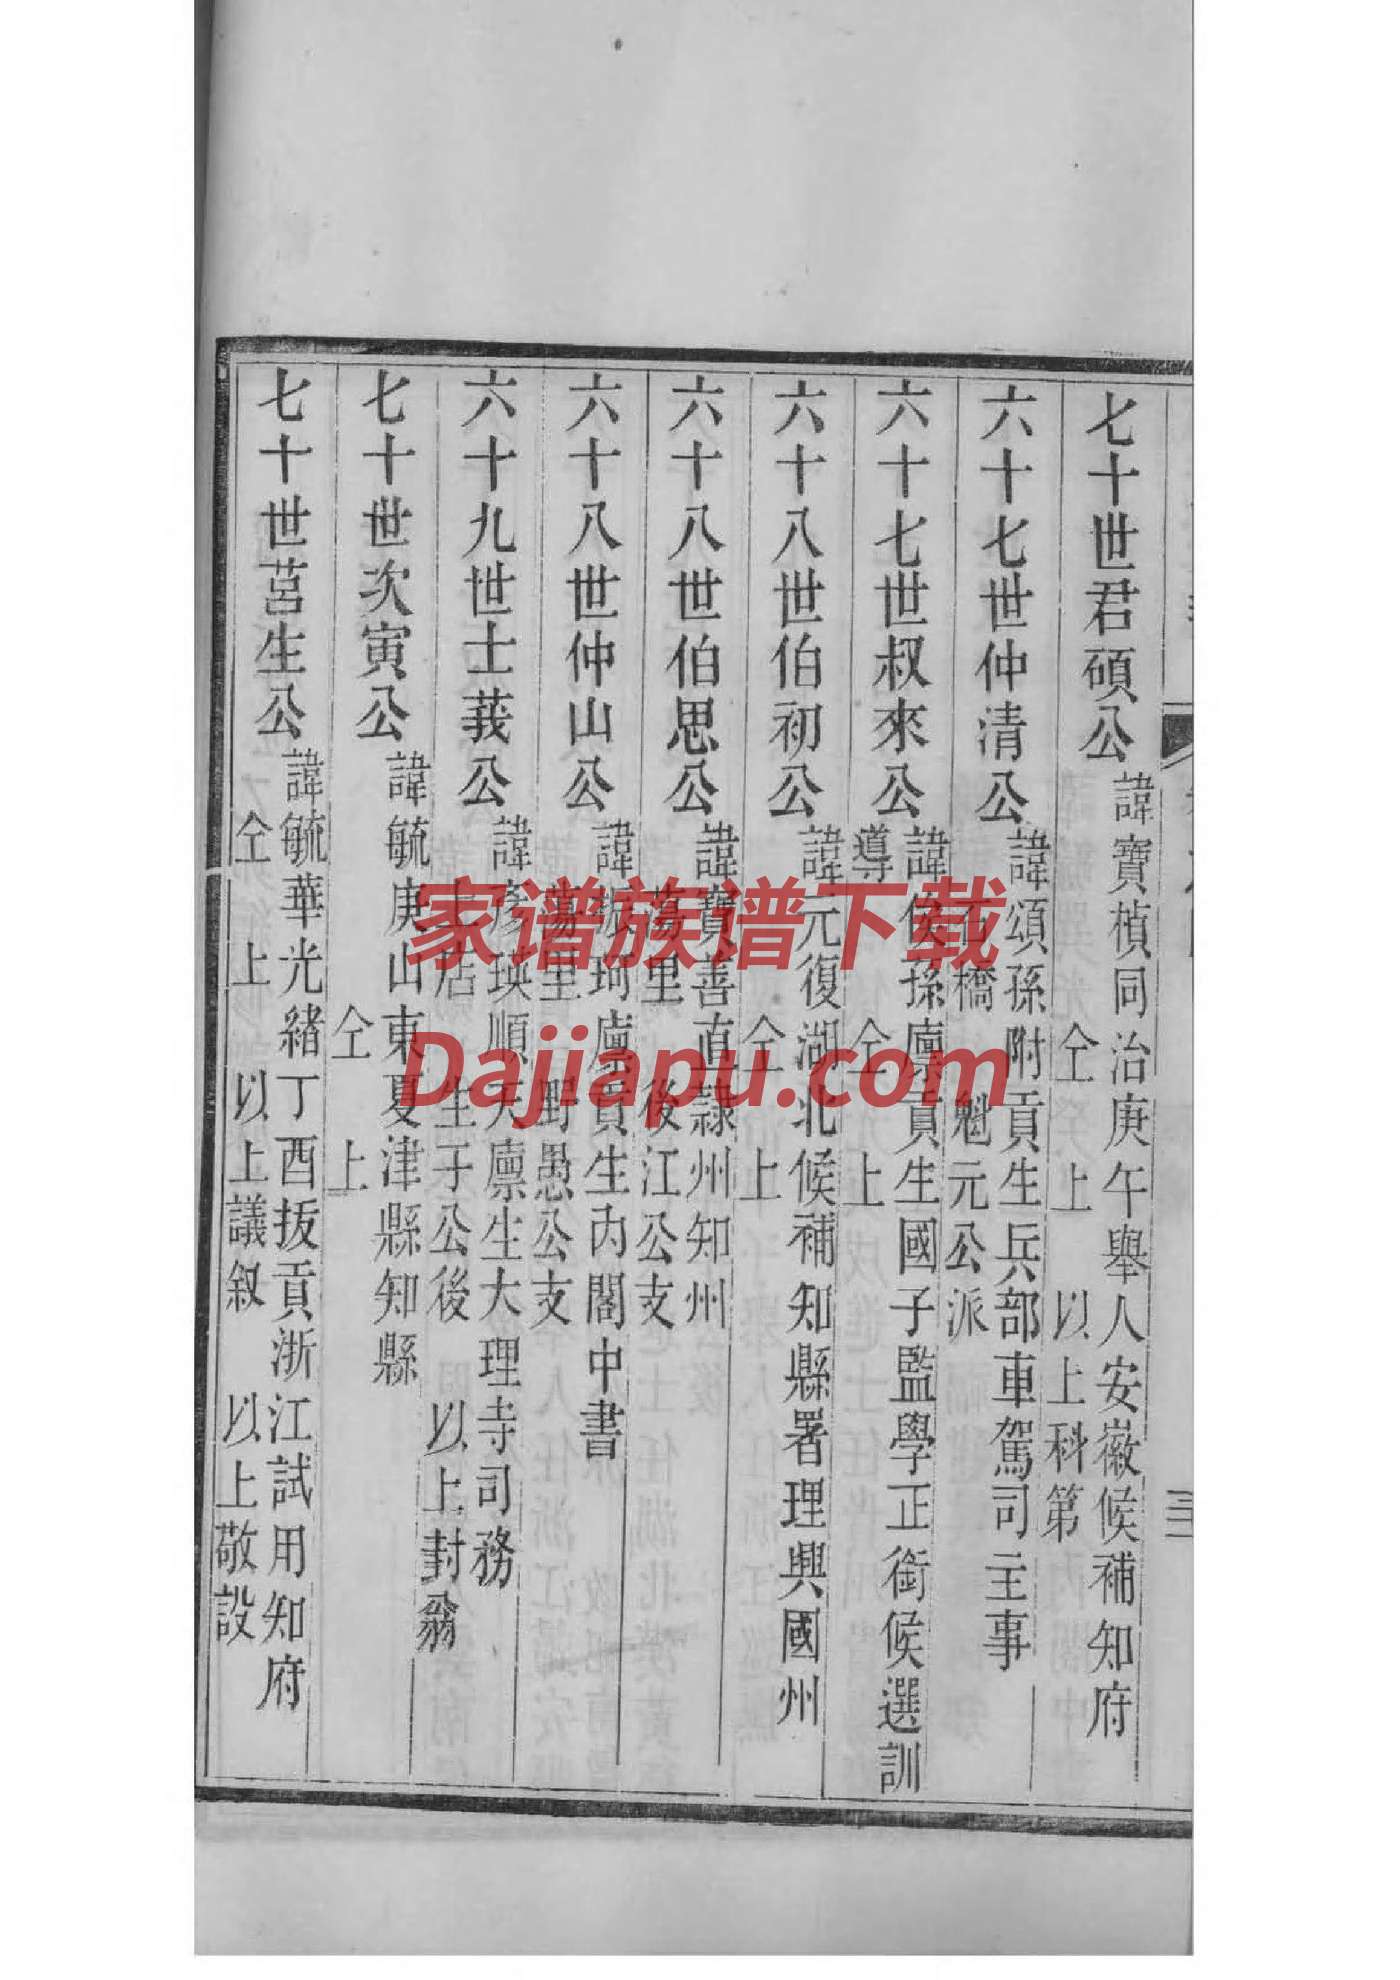 七十世君碩公 諱寶楨同治庚午舉人安徽候補知府
仝 上 以上科第
六十七世仲清公 諱頌孫附貢生兵部車駕司主事
石橋 魁元公派
六十七世叔來公 諱侯孫廩貢生國子監學正銜候選訓
導 仝 上
六十八世伯初公 諱元復湖北候補知縣署理興國州
仝 上
六十八世伯思公 諱寶善直隸州知州
蕩里 後江公支
六十八世仲山公 諱振珂廩貢生內閣中書
蕩里 野愚公支
六十九世士莪公 諱彥瑛順天廩生大理寺司務
上店 生子公後 以上封翁
七十世次寅公 諱毓庚山東夏津縣知縣
仝 上
七十世莒生公 諱毓華光緒丁酉拔貢浙江試用知府
仝 上 以上議叙 以上敬設
家谱族谱下载
Dajiapu.com